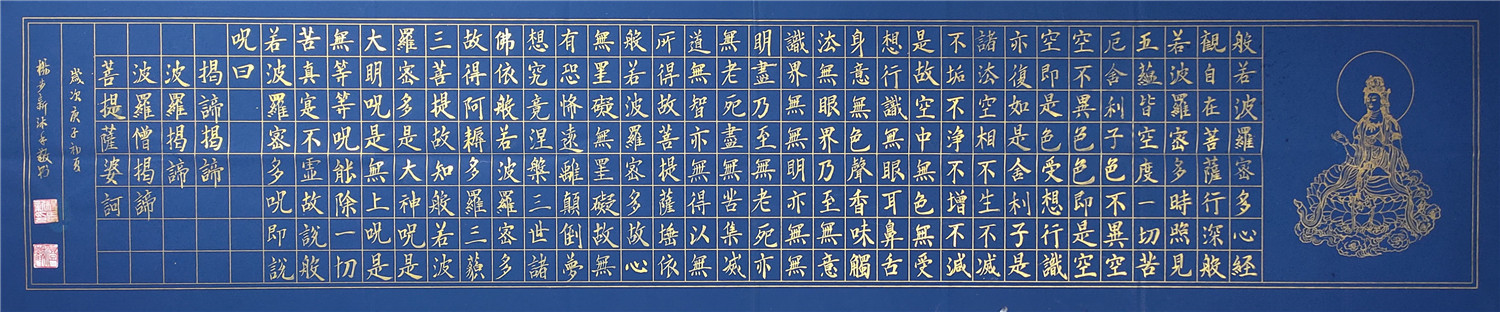 般若波羅密多心經
觀自在菩薩行深般
若波羅密多時照見
五蘊皆空度一切苦
厄舍利子色不異空
空不異色色即是空
空即是色受想行識
亦復如是舍利子是
諸法空相不生不滅
不垢不淨不增不減
是故空中無色無受
想行識無眼耳鼻舌
身意無色聲香味觸
法無眼界乃至無意
識界無無明亦無無
明盡乃至無老死亦
無老死盡無苦集滅
道無智亦無得以無
所得故菩提薩埵依
般若波羅密多故心
無罣礙無罣礙故無
有恐怖遠離顛倒夢
想究竟涅槃三世諸
佛依般若波羅密多
故得阿耨多羅三藐
三菩提故知般若波
羅密多是大神呪是
大明呪是無上呪是
無等等呪能除一切
苦真實不虛故說般
若波羅密多呪即說
呪曰
揭諦揭諦
波羅揭諦
波羅僧揭諦
菩提薩婆訶
歲次庚子初夏
楊步新沐手敬書